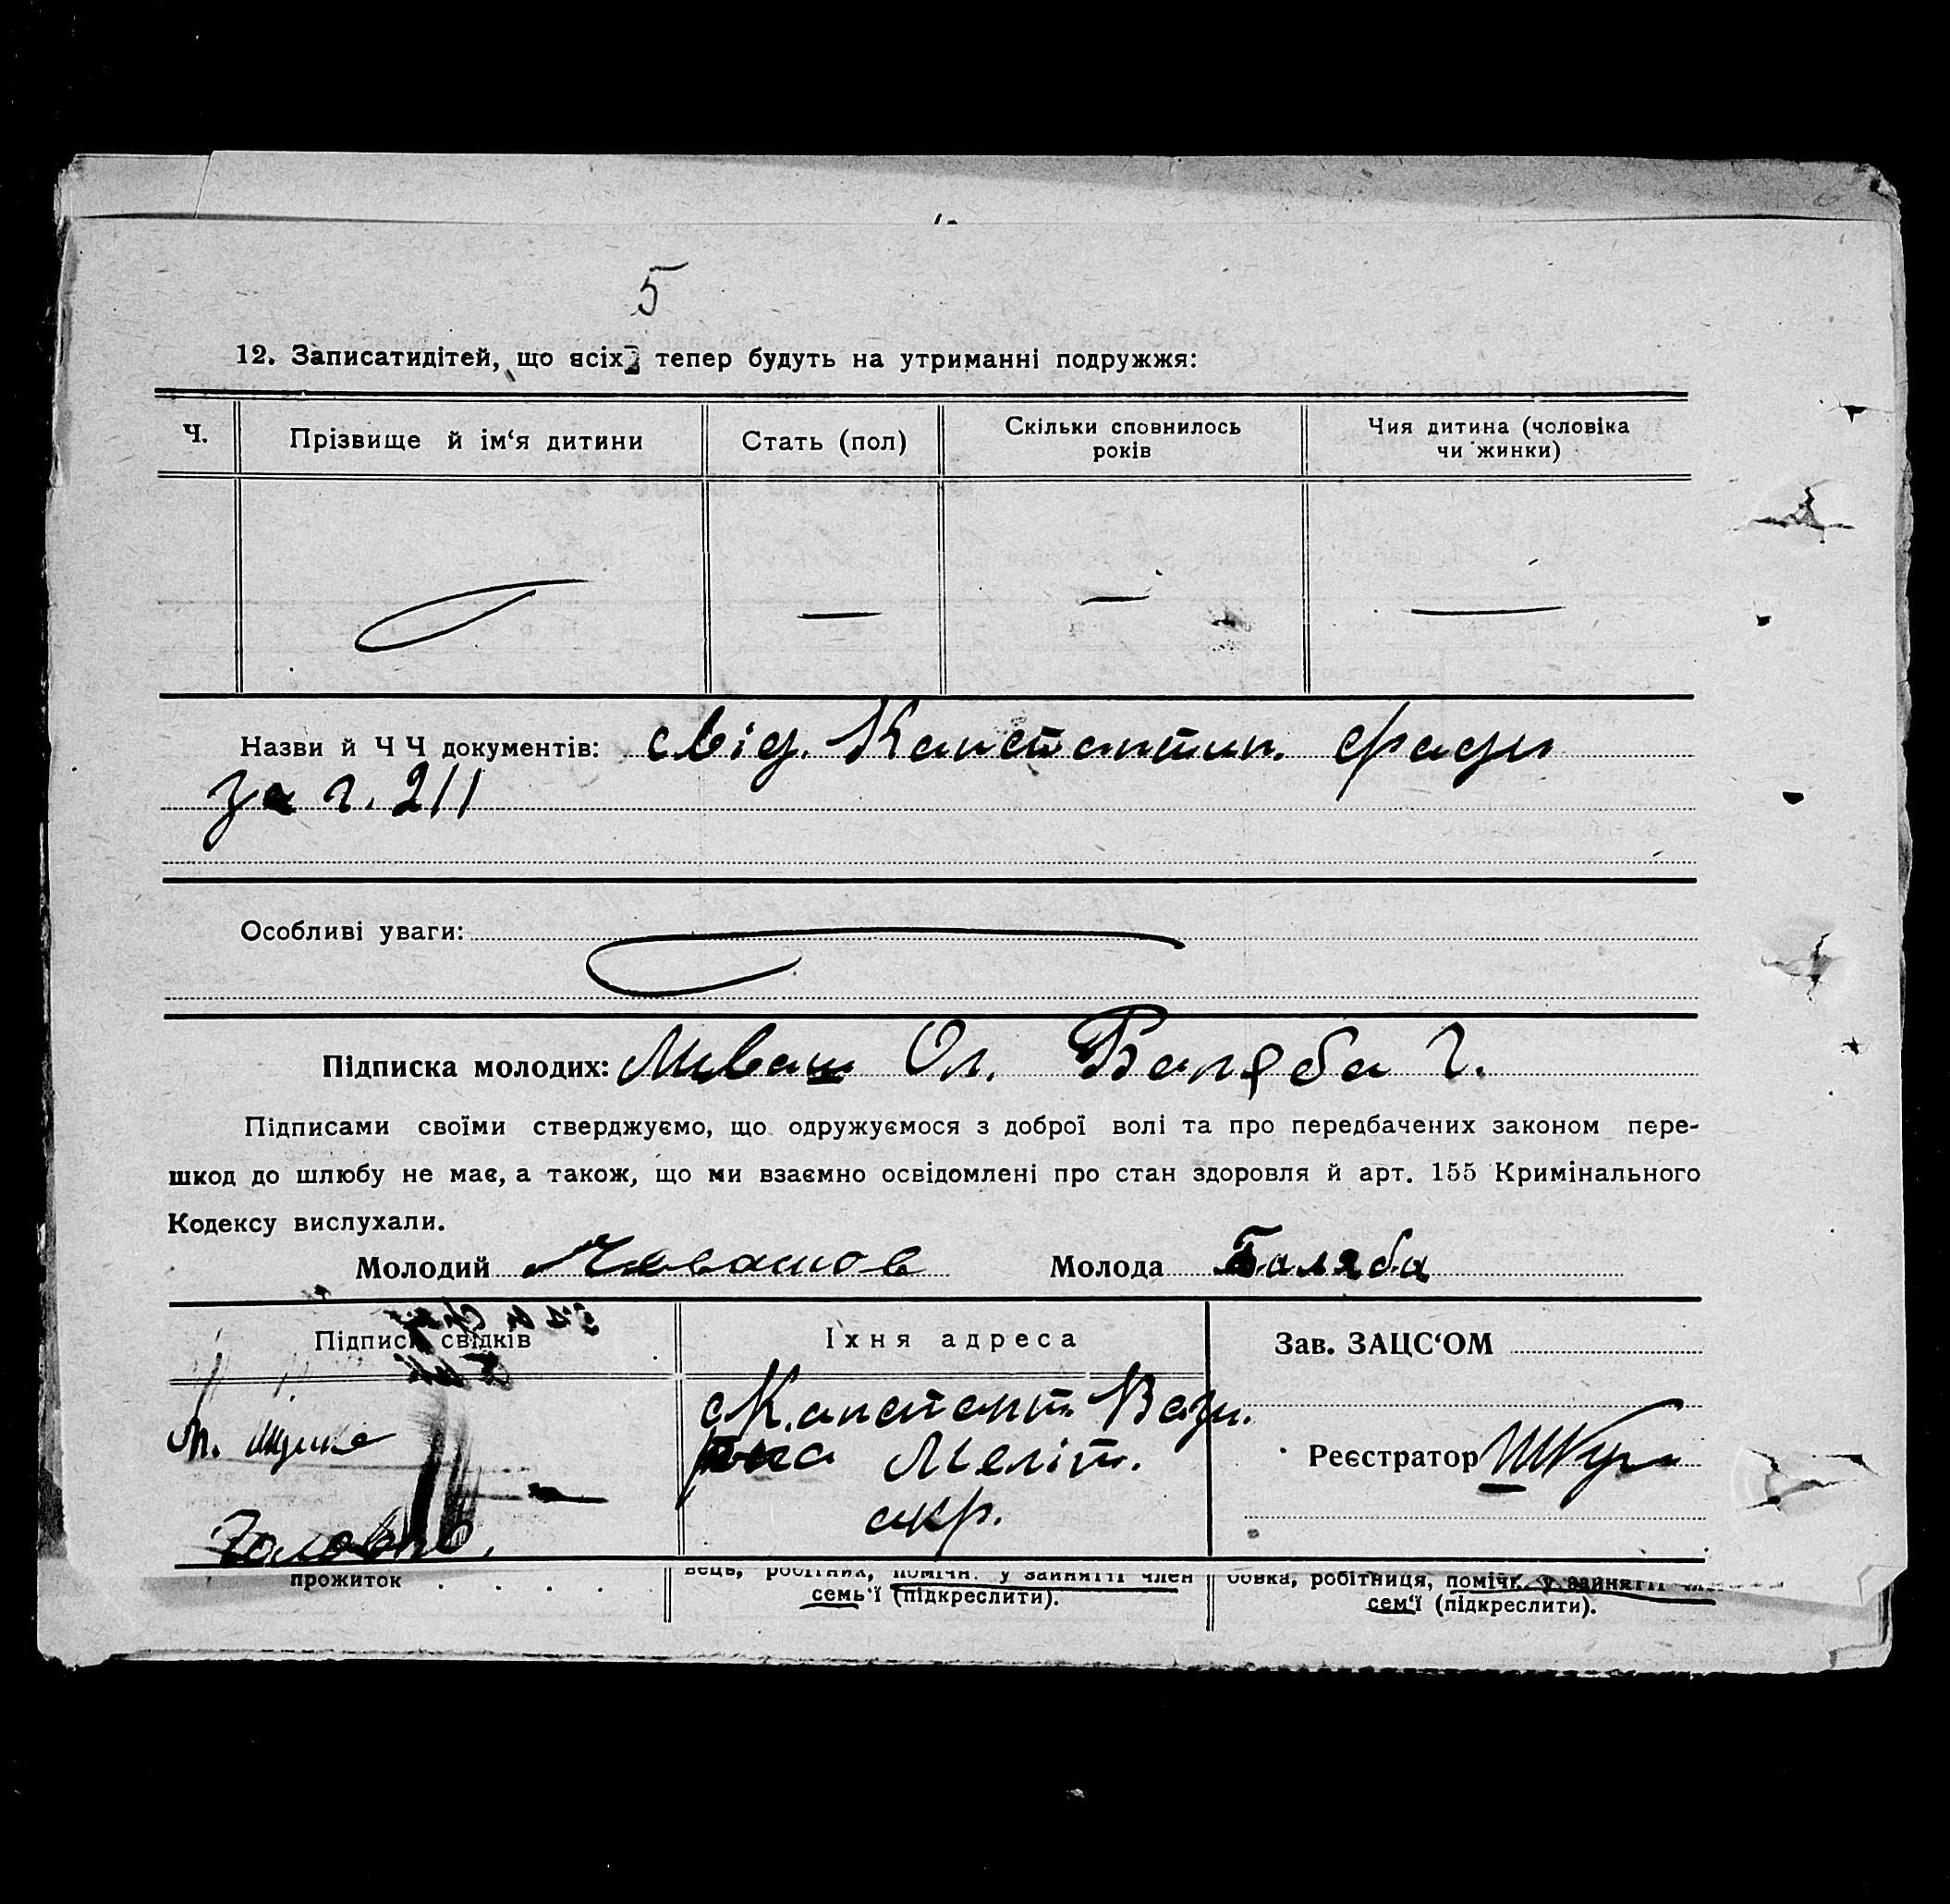 5
12. Записатидітей, що всіх тепер будуть на утриманні подружжя:
Ч. Прізвище й ім‘я дитини Стать (пол) Скільки сповнилось років Чия дитина (чоловіка чи жинки)
Назви й Ч Ч документів: свід. Констянтин. сради
за ч. 211
Особливі уваги:
Підписка молодих: Ол. Баляба Г.
Підписами своїми стверджуємо, що одружуємося з доброї волі та про передбачених законом пере-
шкод до шлюбу не має, а також, що ми взаємно освідомлені про стан здоровля й арт. 155 Кримінального
Кодексу вислухали.
Молодий Молода Баляба
Підписи свідків Їхня адреса Зав. ЗАЦС‘ОМ
Меліт.
Реєстратор
окр.
прожиток . . . .
вець, робітник, помічн. у занятті член
семь‘ї (підкреслити).
бовка, робітниця, помічн. у зайнятті
сем‘ї (підкреслити).